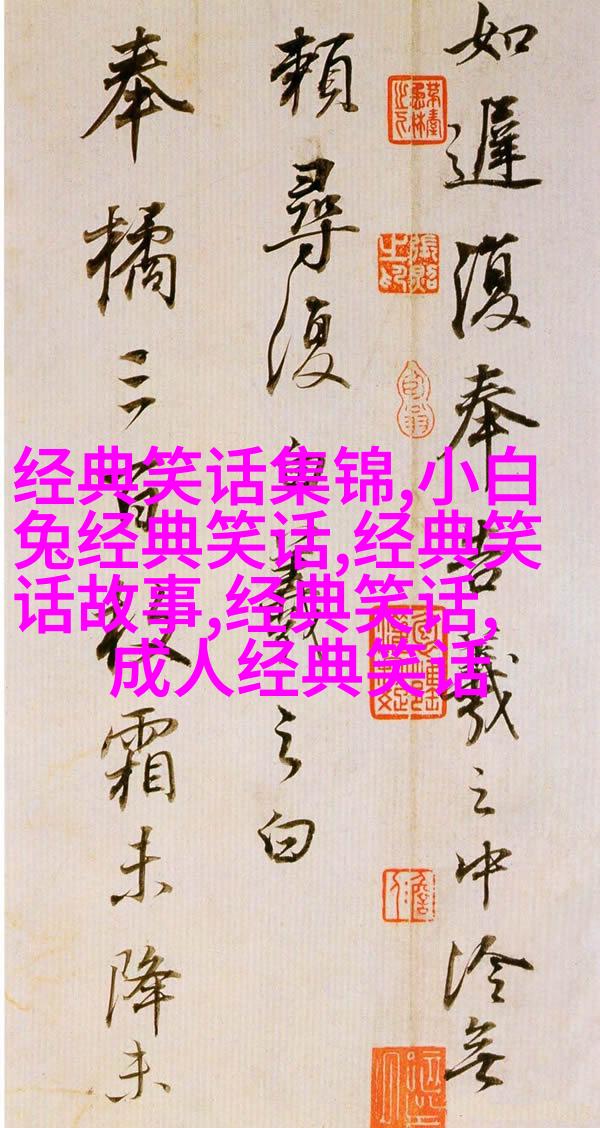 经典笑话集锦,小白
兔经典笑话,经典笑
话故事,经典笑话,
成人经典笑话
如遲復奉告羲之中冷無
賴尋復羲之白
奉橘三百枚霜未降未